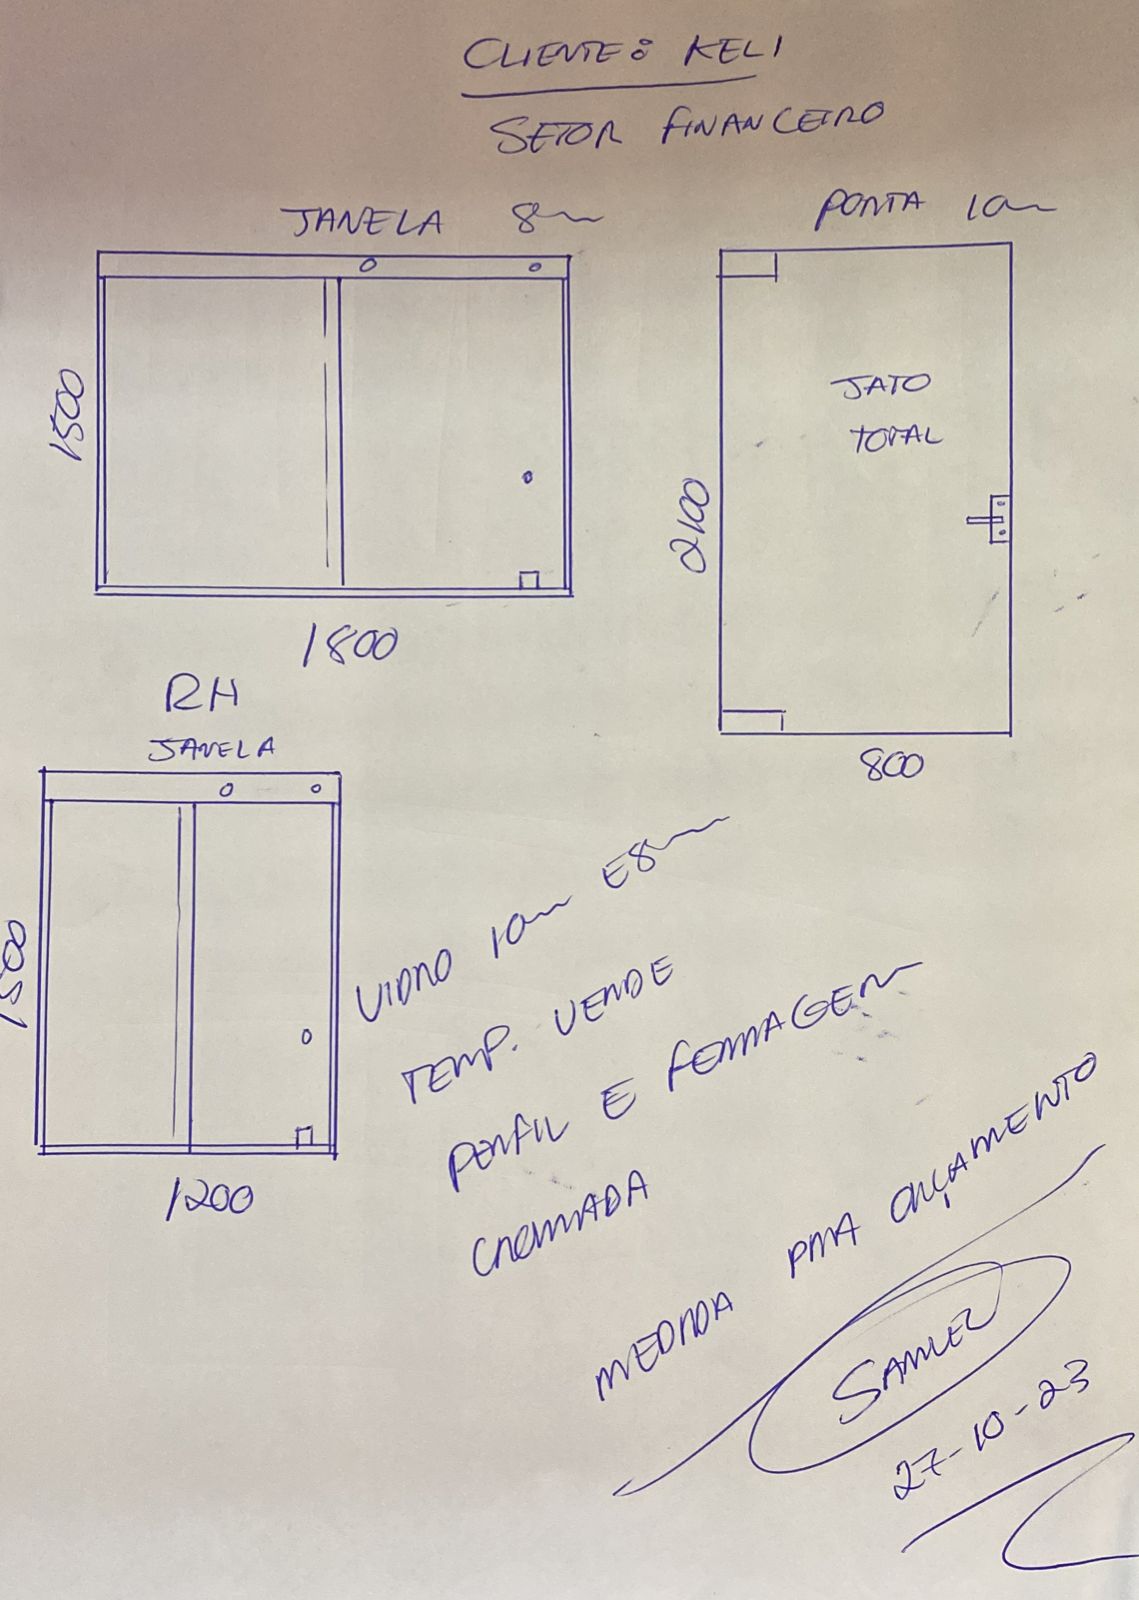 CLIENTE: KELI
SETOR FINANCEIRO
JANELA 8mm
PORTA 10mm
1500
JATO
TOTAL
2100
1800
800
RH
JANELA
1500
1200
VIDRO 10mm E 8mm
TEMP. VERDE
PERFIL E FERRAGEM
CROMADA
MEDIDA PRA ORÇAMENTO
SAMUEL
27-10-23